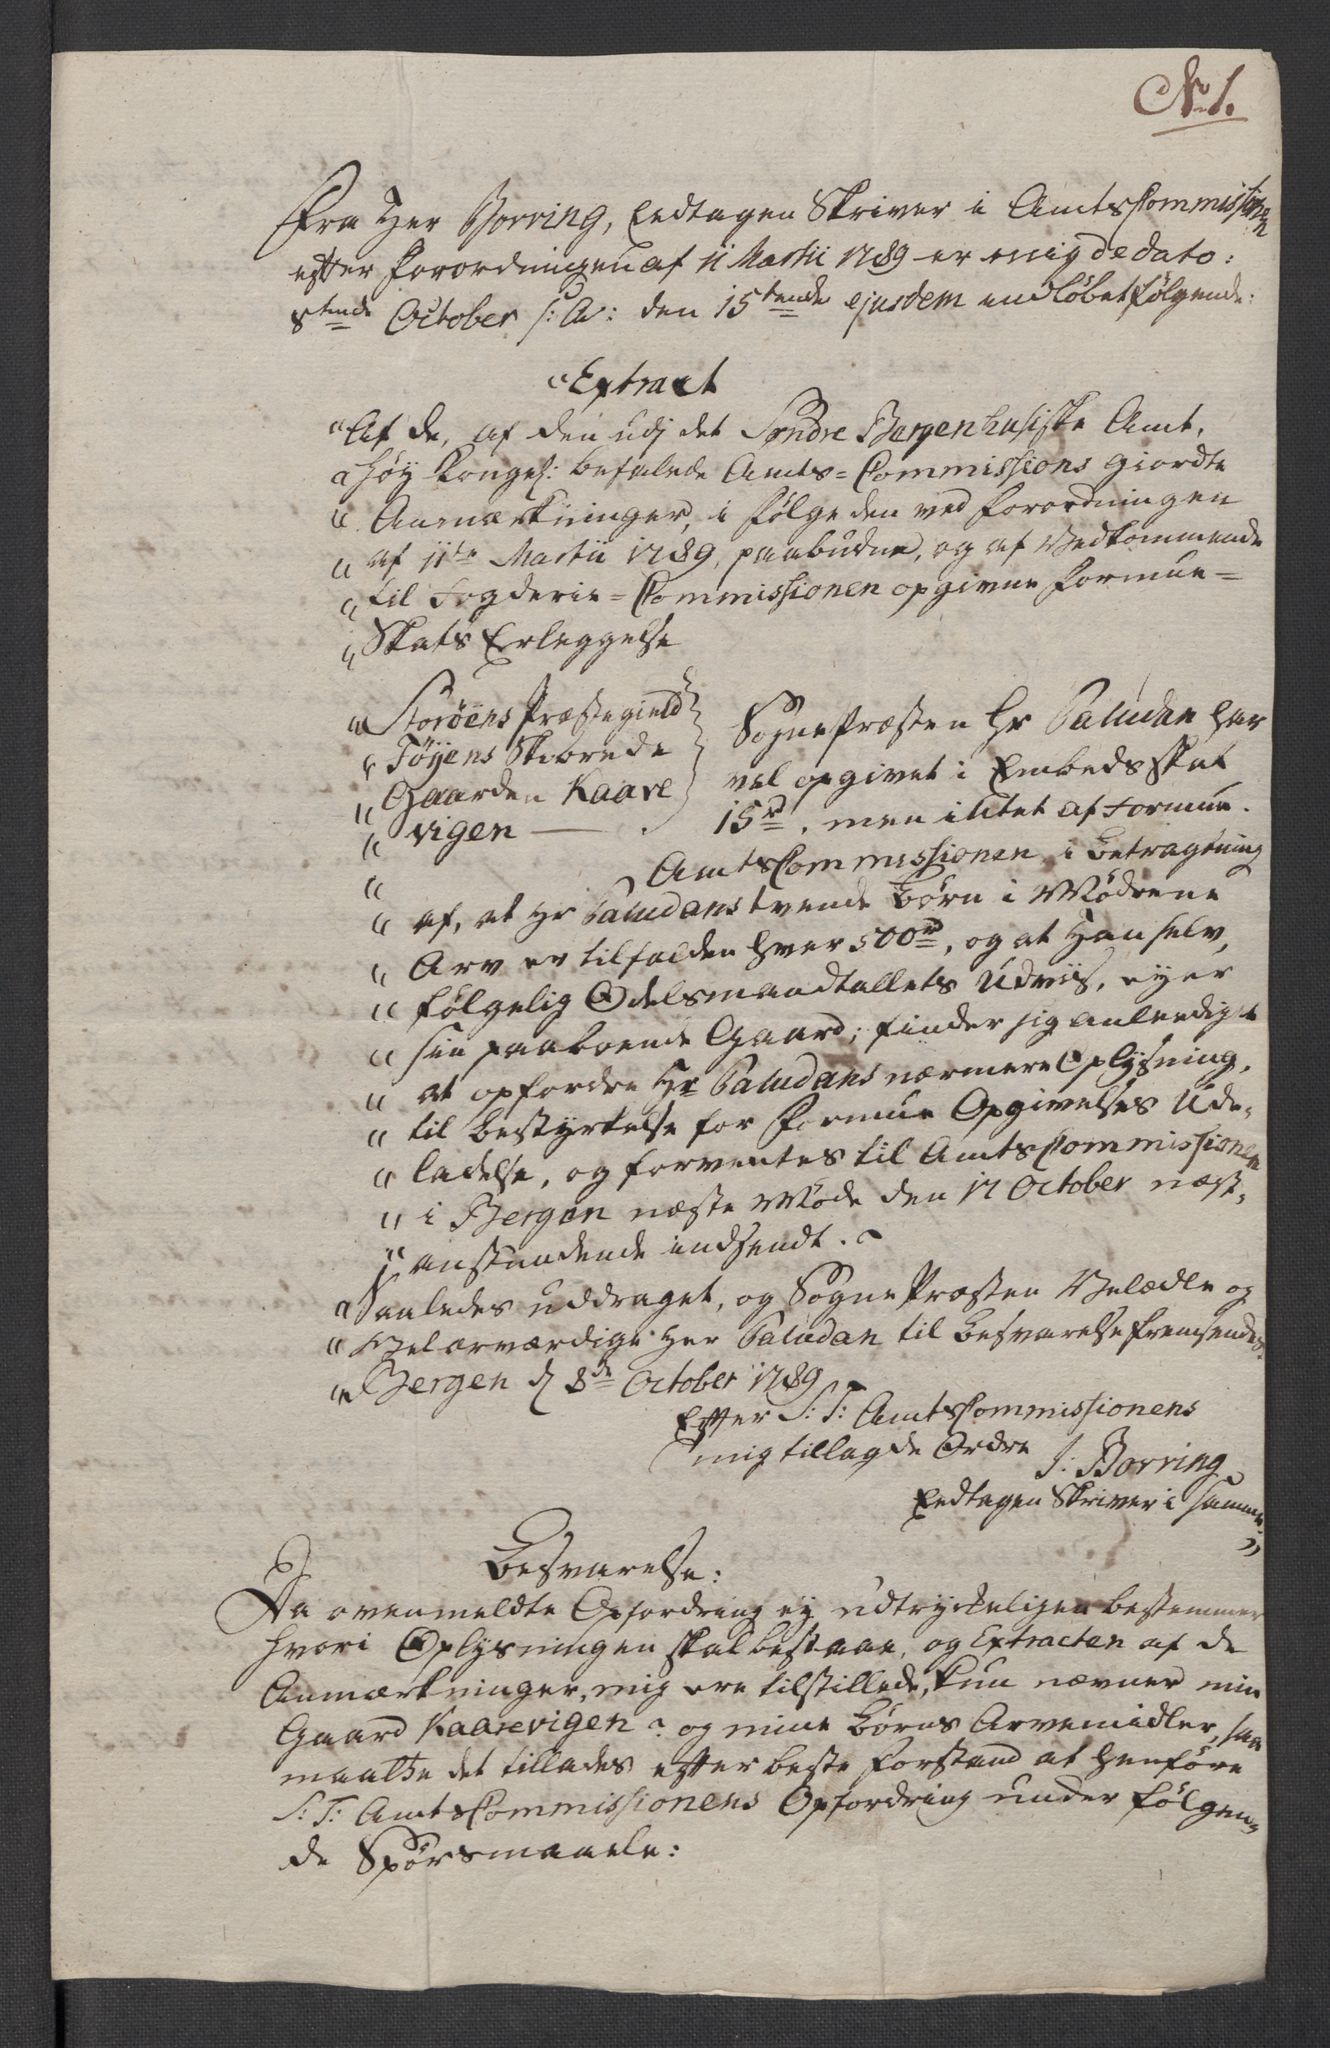 No 1.
Fra Her Borring, Eedtagen Skriver i AmtsCommissionen
efter Forordningen af 11 Martii 1789 er mig de dato:
8tende October s: A: den 15tende ejusdem indløbet følgende:
"Extract
"Af de, af den udj det Søndre Bergenhusiske Amt,
"høy Kongel: befalede Amts=Commissions giordte
"Anmærkninger, i følge den ved Forordningen
"af 11te Martii 1789, paabudne, og af Vedkommende
"til Fogderie=Commissionen opgivne Formue=
"Skats Erleggelse
"Storöens Præstegield
"Föyens Skibrede
"Gaarden Kaare
"vigen —
SognePræsten Hr Paludan har
vel opgivet i Embedsskat
15rd, men intet af Formue.
"AmtsCommissionen i betragtning
"af, at Hr Paludans tvende Børn i Mödrene
"Arv er tilfalden hver 500rd, og at Han selv,
"følgelig Odelsmandtallets Udviis, eyer
"sin paaboende Gaard; finder sig anleediget
"at opfordre Hr Paludans nærmere Oplysning,
"til bestyrkelse for Formue Opgivelses Ude-
"ladelse, og forventes til AmtsCommissionen
"i Bergen næste Møde den 17 October næst-
"anstundende indsendt.
"Saaledes uddraget, og SognePræsten Velædle og
"Velærværdige Her Paludan til besvarelse fremsendes.
"Bergen d 8de October 1789
Efter S: T: AmtsCommissionens
mig tillagde Ordre
J: Borring
Eedtagen Skriver i samme"
Besvarelse:
Da ovenmeldte Opfordring ey udtrykeligen bestemmer
hvori Oplysningen skal bestaae, og Extracten af de
Anmærkninger, mig ere tilstillede, kun nævner min
Gaard Kaarevigen og mine Børns Arvemidler, saa
maatte det tillades efter beste Forstand at henføre
S: T: AmtsCommissionens Opfordring under følgen-
de Spørsmaale: